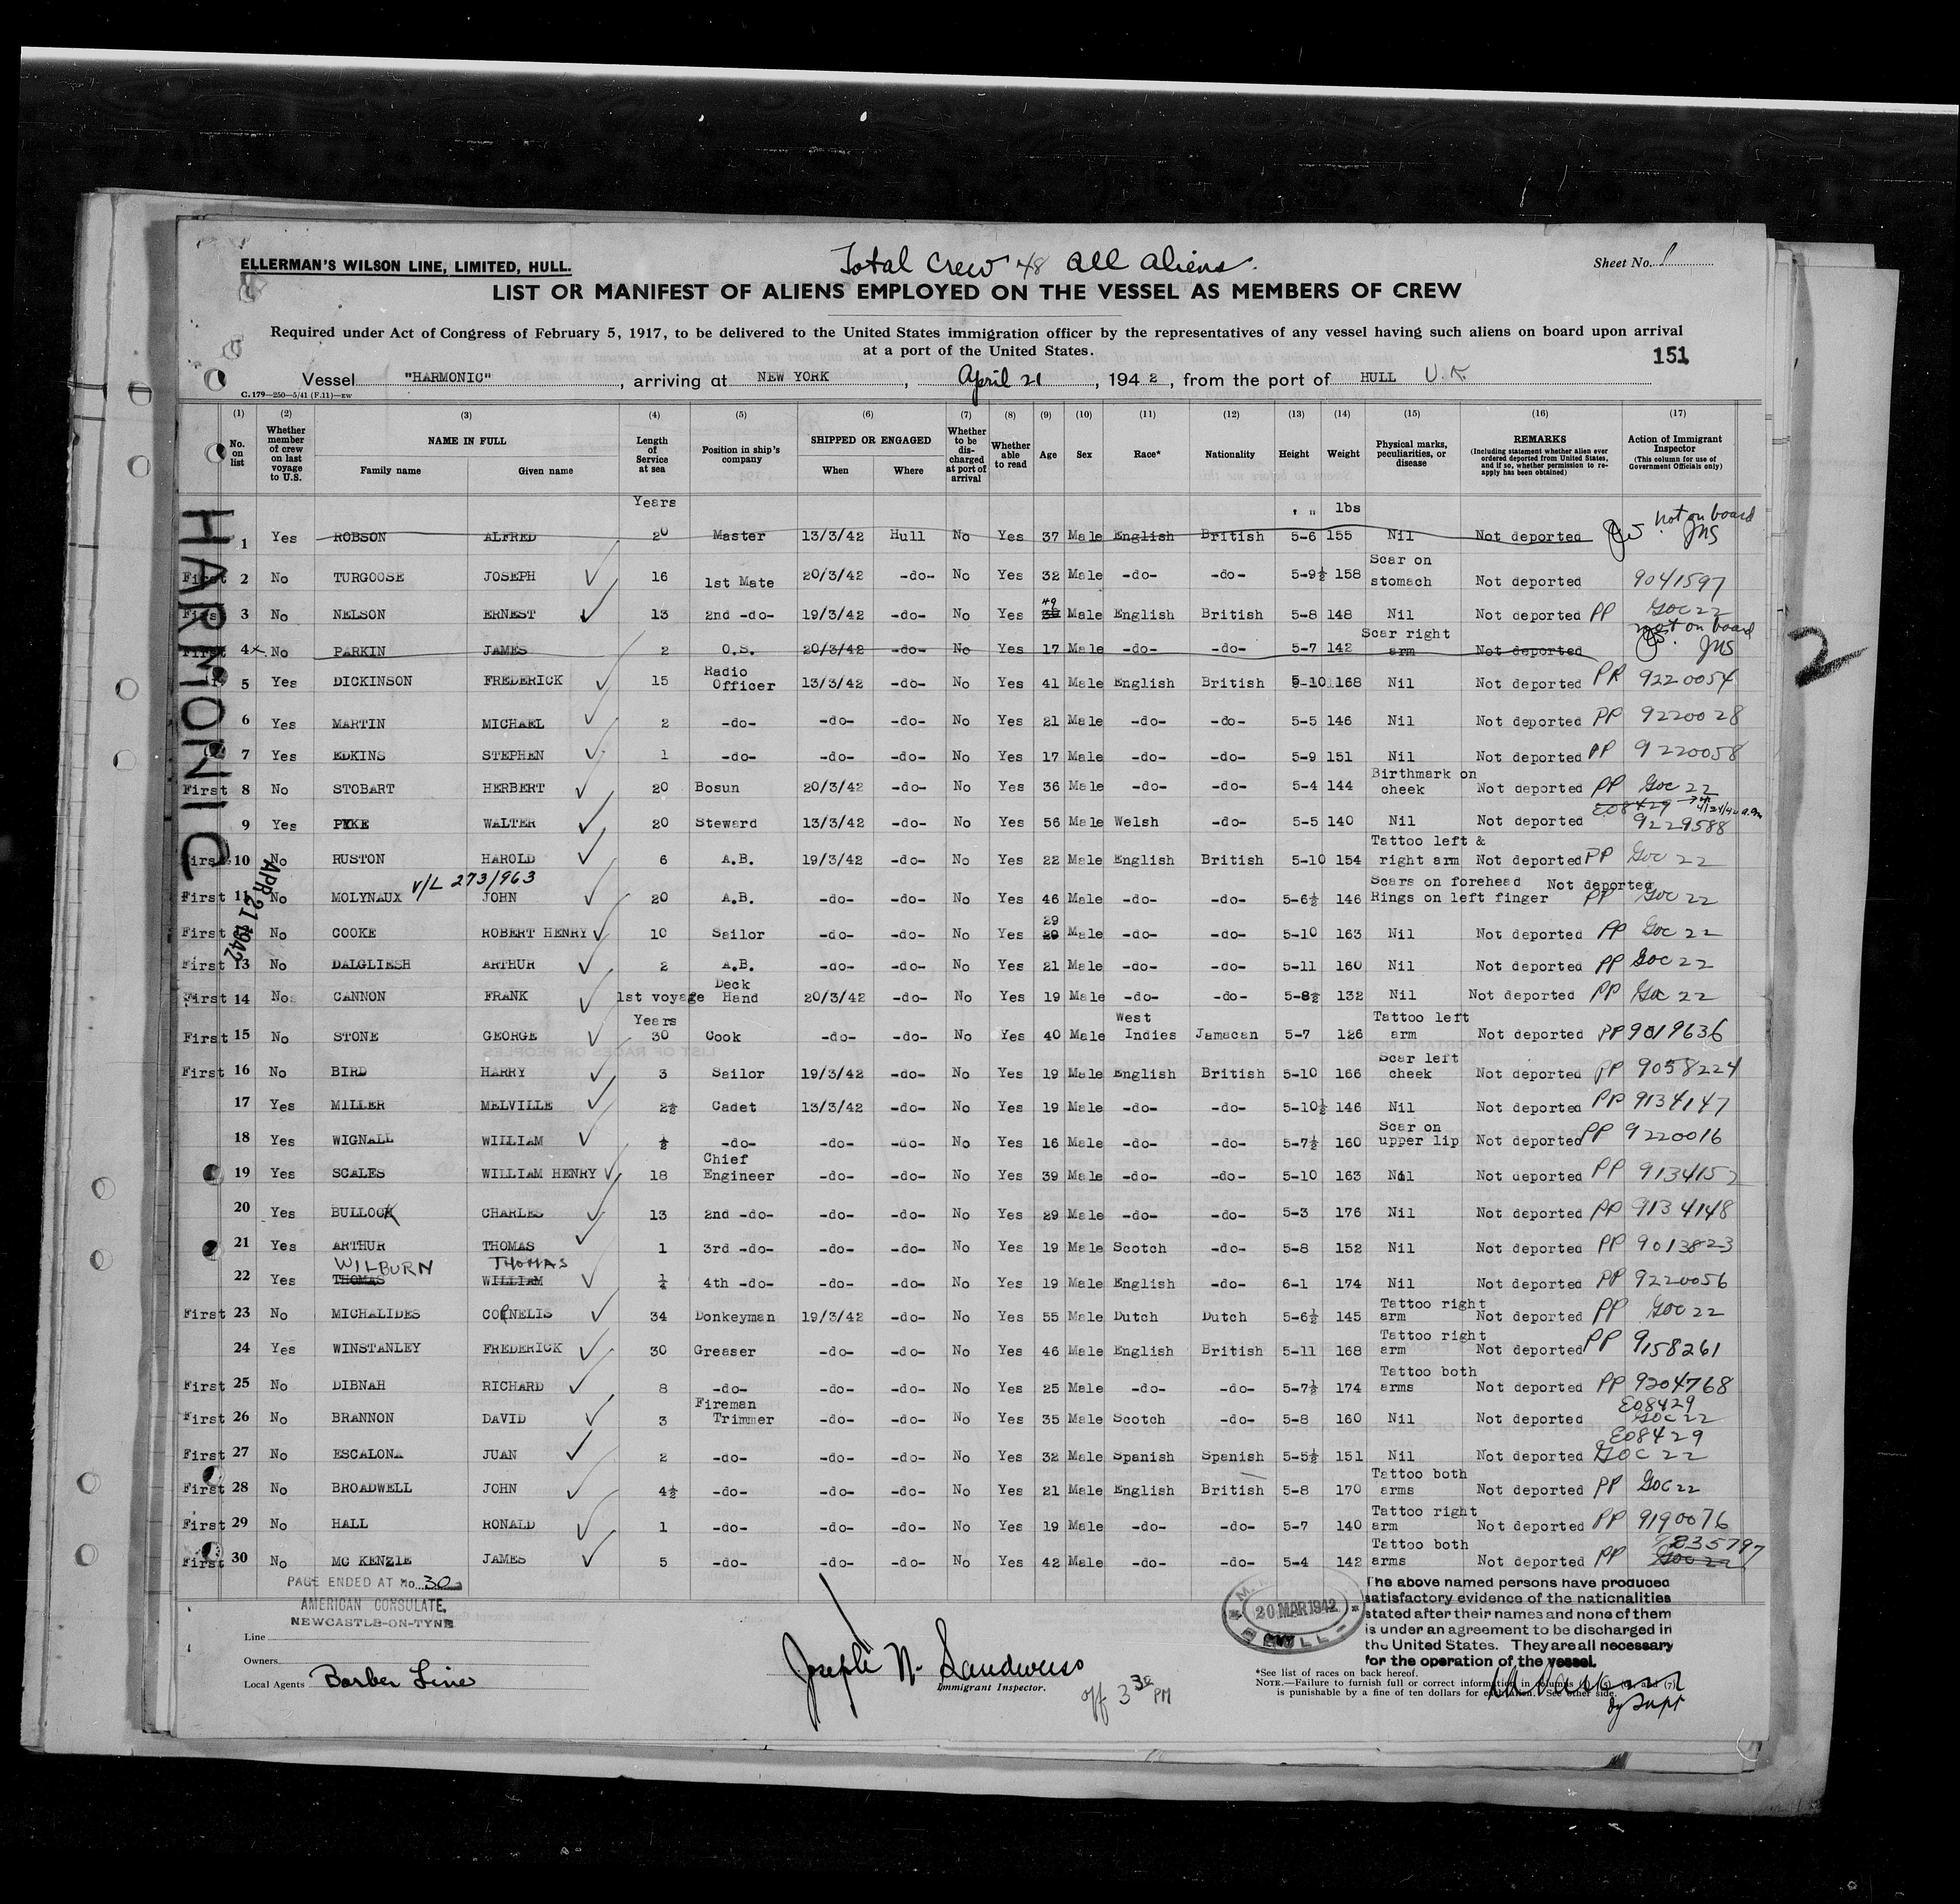 ELLERMAN'S WILSON LINE, LIMITED, HULL.
Total Crew 48 all aliens.
Sheet No. 1
LIST OR MANIFEST OF ALIENS EMPLOYED ON THE VESSEL AS MEMBERS OF CREW
Required under Act of Congress of February 5, 1917, to be delivered to the United States immigration officer by the representatives of any vessel having such aliens on board upon arrival
at a port of the United States.
151
Vessel "HARMONIC", arriving at NEW YORK, April 21, 1942, from the port of HULL U.K.
C.179—250—5/41 (F.11)—EW
(1) (2) (3) (4) (5) (6) (7) (8) (9) (10) (11) (12) (13) (14) (15) (16) (17)
No. on list
Whether member of crew on last voyage to U.S.
NAME IN FULL
Family name
Given name
Length of Service at sea
Position in ship's company
SHIPPED OR ENGAGED
When
Where
Whether to be discharged at port of arrival
Whether able to read
Age
Sex
Race*
Nationality
Height
Weight
Physical marks, peculiarities, or disease
REMARKS
(Including statement whether alien ever ordered deported from United States, and if so, whether permission to re-apply has been obtained)
Action of Immigrant Inspector
(This column for use of Government Officials only)
Years ' " lbs
1 Yes ROBSON ALFRED 20 Master 13/3/42 Hull No Yes 37 Male English British 5-6 155 Nil Not deported not on board JNS
First 2 No TURGOOSE JOSEPH 16 1st Mate 20/3/42 -do- No Yes 32 Male -do- -do- 5-9½ 158 Scar on stomach Not deported 9041597
First 3 No NELSON ERNEST 13 2nd -do- 19/3/42 -do- No Yes 49 Male English British 5-8 148 Nil Not deported PP GOC 22
First 4x No PARKIN JAMES 2 O.S. 20/3/42 -do- No Yes 17 Male -do- -do- 5-7 142 Scar right arm Not deported not on board JNS
5 Yes DICKINSON FREDERICK 15 Radio Officer 13/3/42 -do- No Yes 41 Male English British 5-10 168 Nil Not deported PP 9220054
6 Yes MARTIN MICHAEL 2 -do- -do- -do- No Yes 21 Male -do- -do- 5-5 146 Nil Not deported PP 9220028
7 Yes EDKINS STEPHEN 1 -do- -do- -do- No Yes 17 Male -do- -do- 5-9 151 Nil Not deported PP 9220058
First 8 No STOBART HERBERT 20 Bosun 20/3/42 -do- No Yes 36 Male -do- -do- 5-4 144 Birthmark on cheek Not deported PP GOC 22
9 Yes PYKE WALTER 20 Steward 13/3/42 -do- No Yes 56 Male Welsh -do- 5-5 140 Nil Not deported E08429 9229588
First 10 No RUSTON HAROLD 6 A.B. 19/3/42 -do- No Yes 22 Male English British 5-10 154 Tattoo left & right arm Not deported PP GOC 22
v/L 273/963
First 11 No MOLYNAUX JOHN 20 A.B. -do- -do- No Yes 46 Male -do- -do- 5-6½ 146 Scars on forehead Rings on left finger Not deported PP GOC 22
First No COOKE ROBERT HENRY 10 Sailor -do- -do- No Yes 29 Male -do- -do- 5-10 163 Nil Not deported PP GOC 22
First 13 No DALGLIESH ARTHUR 2 A.B. -do- -do- No Yes 21 Male -do- -do- 5-11 160 Nil Not deported PP GOC 22
First 14 No CANNON FRANK 1st voyage Deck Hand 20/3/42 -do- No Yes 19 Male -do- -do- 5-8½ 132 Nil Not deported PP GOC 22
First 15 No STONE GEORGE Years 30 Cook -do- -do- No Yes 40 Male West Indies Jamacan 5-7 126 Tattoo left arm Not deported PP 9019636
First 16 No BIRD HARRY 3 Sailor 19/3/42 -do- No Yes 19 Male English British 5-10 166 Scar left cheek Not deported PP 9058224
17 Yes MILLER MELVILLE 2½ Cadet 13/3/42 -do- No Yes 19 Male -do- -do- 5-10½ 146 Nil Not deported PP 9134147
18 Yes WIGNALL WILLIAM ½ -do- -do- -do- No Yes 16 Male -do- -do- 5-7½ 160 Scar on upper lip Not deported PP 9220016
19 Yes SCALES WILLIAM HENRY 18 Chief Engineer -do- -do- No Yes 39 Male -do- -do- 5-10 163 Nil Not deported PP 9134152
20 Yes BULLOCK CHARLES 13 2nd -do- -do- -do- No Yes 29 Male -do- -do- 5-3 176 Nil Not deported PP 9134148
21 Yes ARTHUR THOMAS 1 3rd -do- -do- -do- No Yes 19 Male Scotch -do- 5-8 152 Nil Not deported PP 9013823
WILBURN THOMAS
22 Yes THOMAS WILLIAM ¼ 4th -do- -do- -do- No Yes 19 Male English -do- 6-1 174 Nil Not deported PP 9220056
First 23 No MICHALIDES CORNELIS 34 Donkeyman 19/3/42 -do- No Yes 55 Male Dutch Dutch 5-6½ 145 Tattoo right arm Not deported PP GOC 22
24 Yes WINSTANLEY FREDERICK 30 Greaser -do- -do- No Yes 46 Male English British 5-11 168 Tattoo right arm Not deported PP 9158261
First 25 No DIBNAH RICHARD 8 -do- -do- -do- No Yes 25 Male -do- -do- 5-7½ 174 Tattoo both arms Not deported PP 9204768
First 26 No BRANNON DAVID 3 Fireman Trimmer -do- -do- No Yes 35 Male Scotch -do- 5-8 160 Nil Not deported E08429 GOC 22
First 27 No ESCALONA JUAN 2 -do- -do- -do- No Yes 32 Male Spanish Spanish 5-5½ 151 Nil Not deported E08429 GOC 22
First 28 No BROADWELL JOHN 4½ -do- -do- -do- No Yes 21 Male English British 5-8 170 Tattoo both arms Not deported PP GOC 22
First 29 No HALL RONALD 1 -do- -do- -do- No Yes 19 Male -do- -do- 5-7 140 Tattoo right arm Not deported PP 9190076
First 30 No MC KENZIE JAMES 5 -do- -do- -do- No Yes 42 Male -do- -do- 5-4 142 Tattoo both arms Not deported PP GOC 22
HARMONIC
APR 21 1942
2
PAGE ENDED AT No. 30
AMERICAN CONSULATE,
NEWCASTLE-ON-TYNE
Line
Owners
Local Agents Barber Line
Immigrant Inspector.
off 3 30 PM
20 MAR 1942
HULL
The above named persons have produced
satisfactory evidence of the nationalities
stated after their names and none of them
is under an agreement to be discharged in
the United States. They are all necessary
for the operation of the vessel.
*See list of races on back hereof.
NOTE.—Failure to furnish full or correct information in columns (5) and (7)
is punishable by a fine of ten dollars for each alien. See other side.